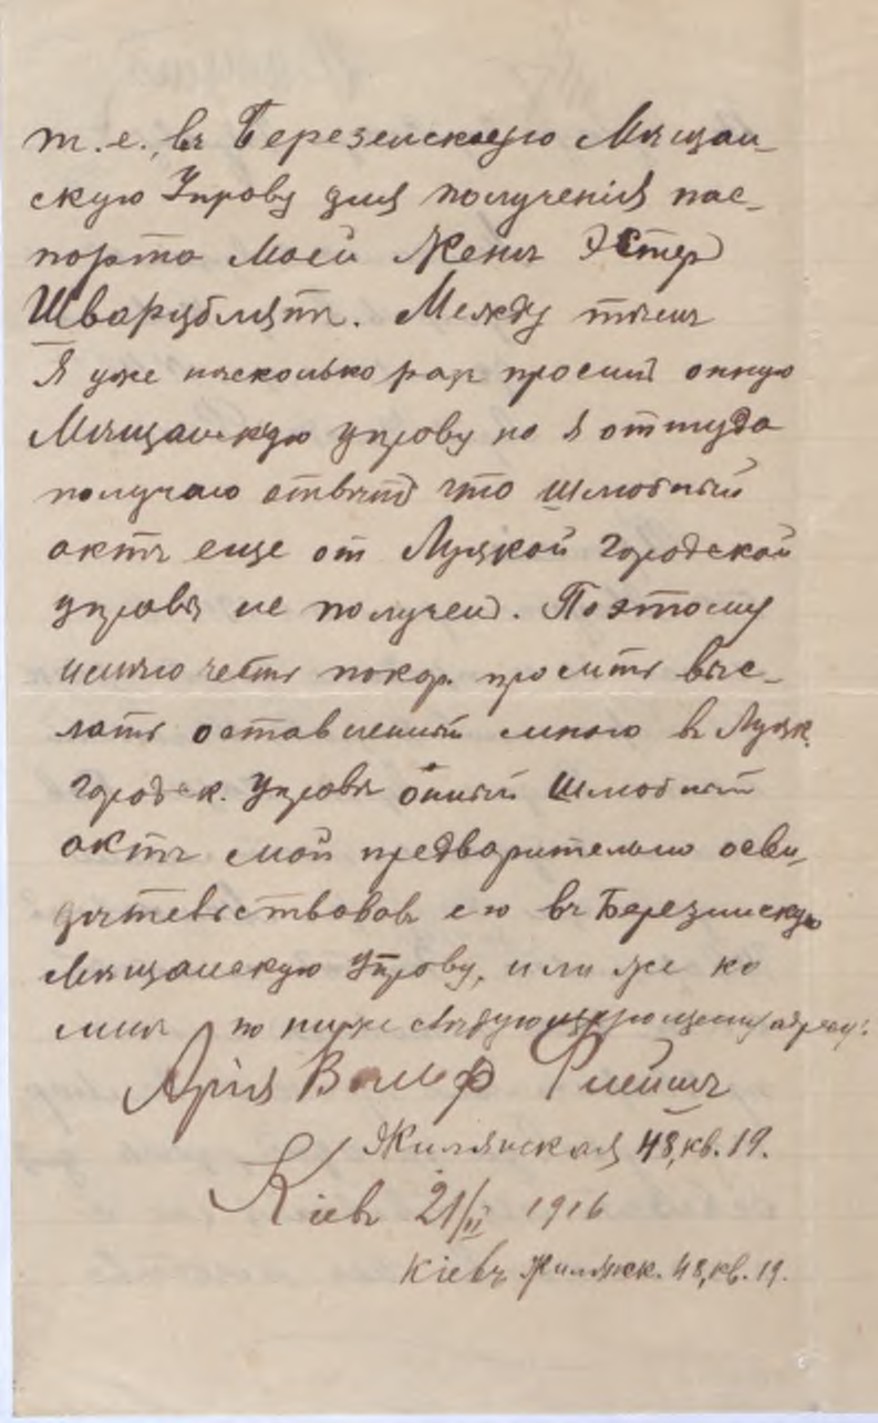 т.е., въ Березенскую Мѣщан-
скую Управу для полученія пас-
порта моей женѣ Эстер
Шварцблятъ. Между тѣмъ
Я уже нѣсколько разъ просилъ онную
Мѣщанскую управу но я оттуда
получаю отвѣтъ что шлюбный
актъ еще от Луцкой Городской
управы не полученъ. Поэтому
имѣю честь покор. просить выс-
лать оставленный мною въ Луцк.
городск. Управѣ онный Шлюбный
актъ мой предварительно осви-
дѣтельствовавъ его въ Березинскую
Мѣщанскую Управу, или же ко
мнѣ по ниже адресу:
Арія Вольф
Жилянская 48, кв. 19.
Кіевъ 21/II 1916
Кіевъ Жилянск. 48, кв. 19.